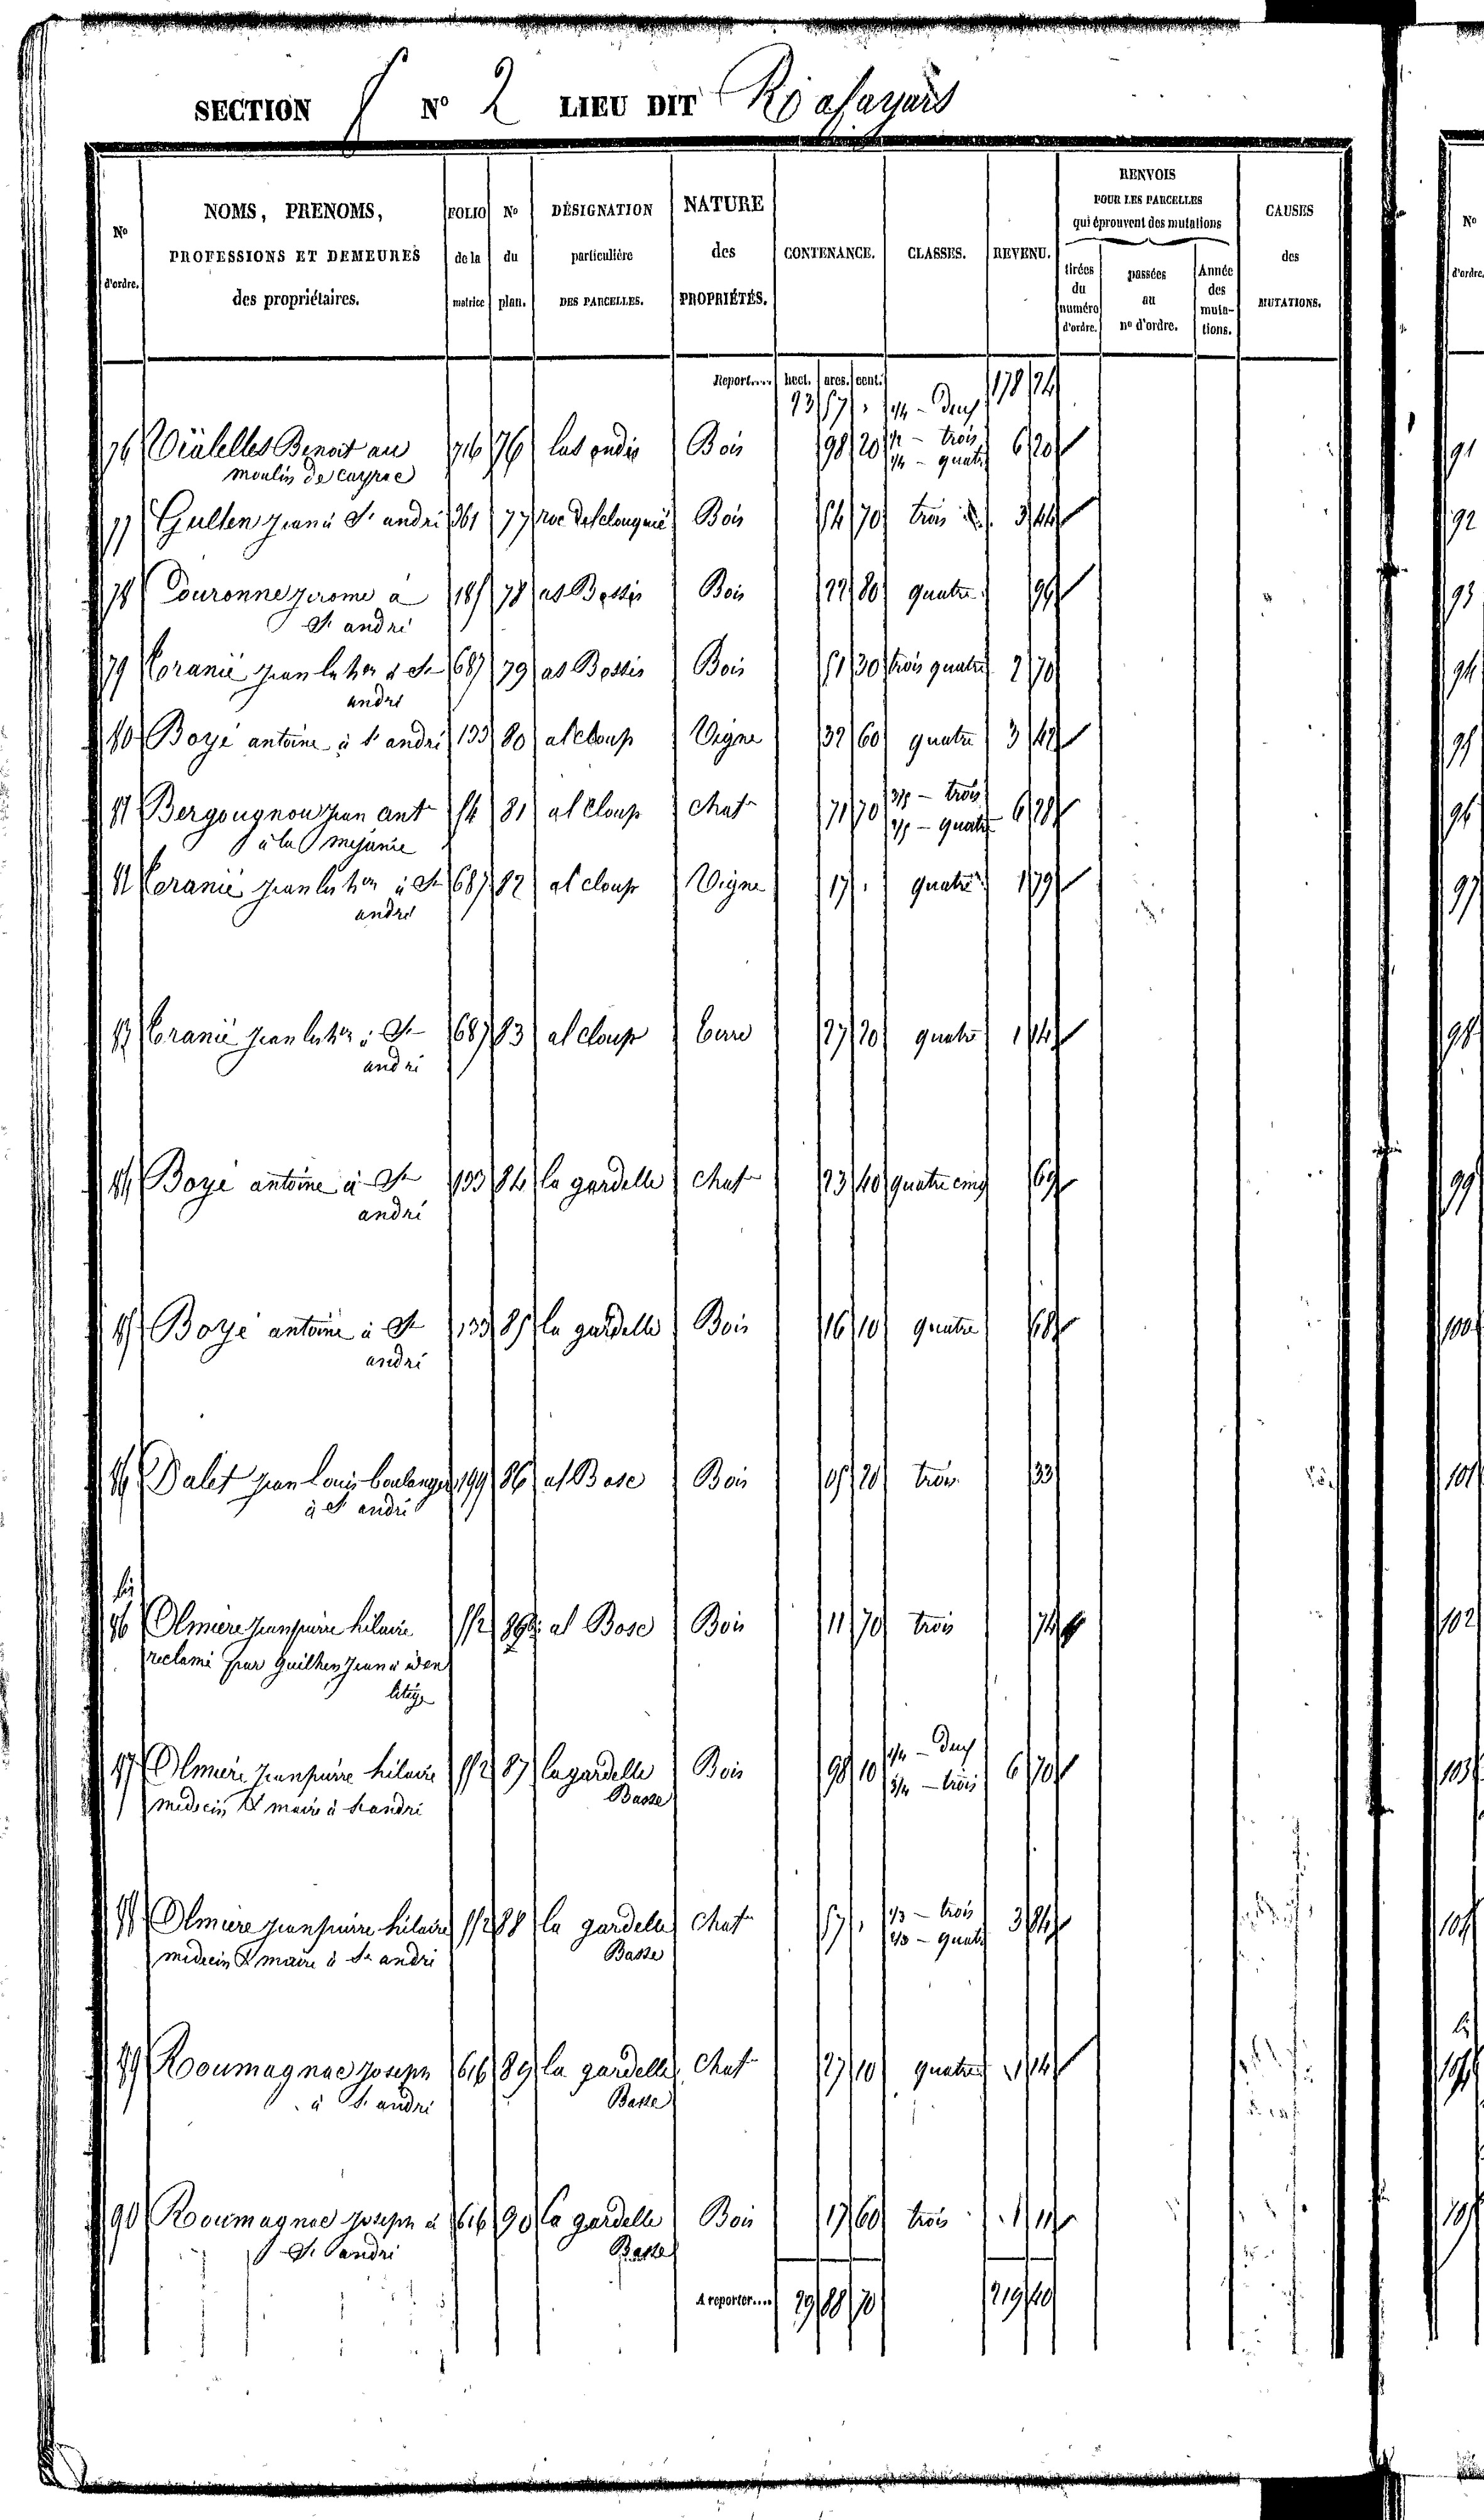 SECTION N° 2 LIEU DIT
N° d'ordre.
NOMS, PRENOMS, PROFESSIONS ET DEMEURES des propriétaires.
FOLIO de la matrice
N° du plan.
DÉSIGNATION particulière DES PARCELLES.
NATURE des PROPRIÉTÉS.
CONTENANCE.
CLASSES.
REVENU.
RENVOIS POUR LES PARCELLES qui éprouvent des mutations
tirées du numéro d'ordre.
passées au n° d'ordre.
Année des mutations.
CAUSES des MUTATIONS.
Report.... hect. ares. cent. 178 24
1/4 - Deux
76 Benoit au 716 76 Bois 98 20 1/2 - trois 6 20
moulin de cayrac 1/4 - quatre
77 andré 361 77 Bois 54 70 trois 3 44
78 Couronne jerome à 185 78 as Bossis Bois 22 80 quatre 96
St andré
79 687 79 as Bossis Bois 51 30 trois quatre 2 70
andré
80 Boyé antoine à St andré 133 80 al cloup Vigne 32 60 quatre 3 42
81 Bergougnou jean ant 54 81 al cloup chat 71 70 3/5 - trois 6 28
à la mejanie 2/5 - quatre
82 687 82 al cloup Vigne 17 quatre 1 79
andré
83 687 83 al cloup terre 27 20 quatre 1 14
andré
84 Boyé antoine à St 133 84 la gardelle chat 23 40 quatre cinq 69
andré
85 Boyé antoine à St 133 85 la gardelle Bois 16 10 quatre 68
andré
86 Dalet jean louis boulanger 199 86 al Bosc Bois 05 20 trois 33
à St andré
bis
86 Olmiere jean pierre hilaire 552 86 al Bosc Bois 11 70 trois 74
reclamé par Guilhen jean
litige
87 Olmiere jean pierre hilaire 552 87 la gardelle Bois 98 10 1/4 - Deux 6 70
medecin & maire à St andré Basse 3/4 - trois
88 Olmiere jean pierre hilaire 552 88 la gardelle chat 57 1/3 - trois 3 84
medecin & maire à St andré Basse 2/3 - quatre
89 Roumagnac joseph 616 89 la gardelle chat 27 10 quatre 1 14
à St andré Basse
90 Roumagnac joseph à 616 90 la gardelle Bois 17 60 trois 1 11
St andré Basse
A reporter.... 29 88 70 219 40
N° d'ordre.
91
92
93
94
95
96
97
98
99
100
101
102
103
104